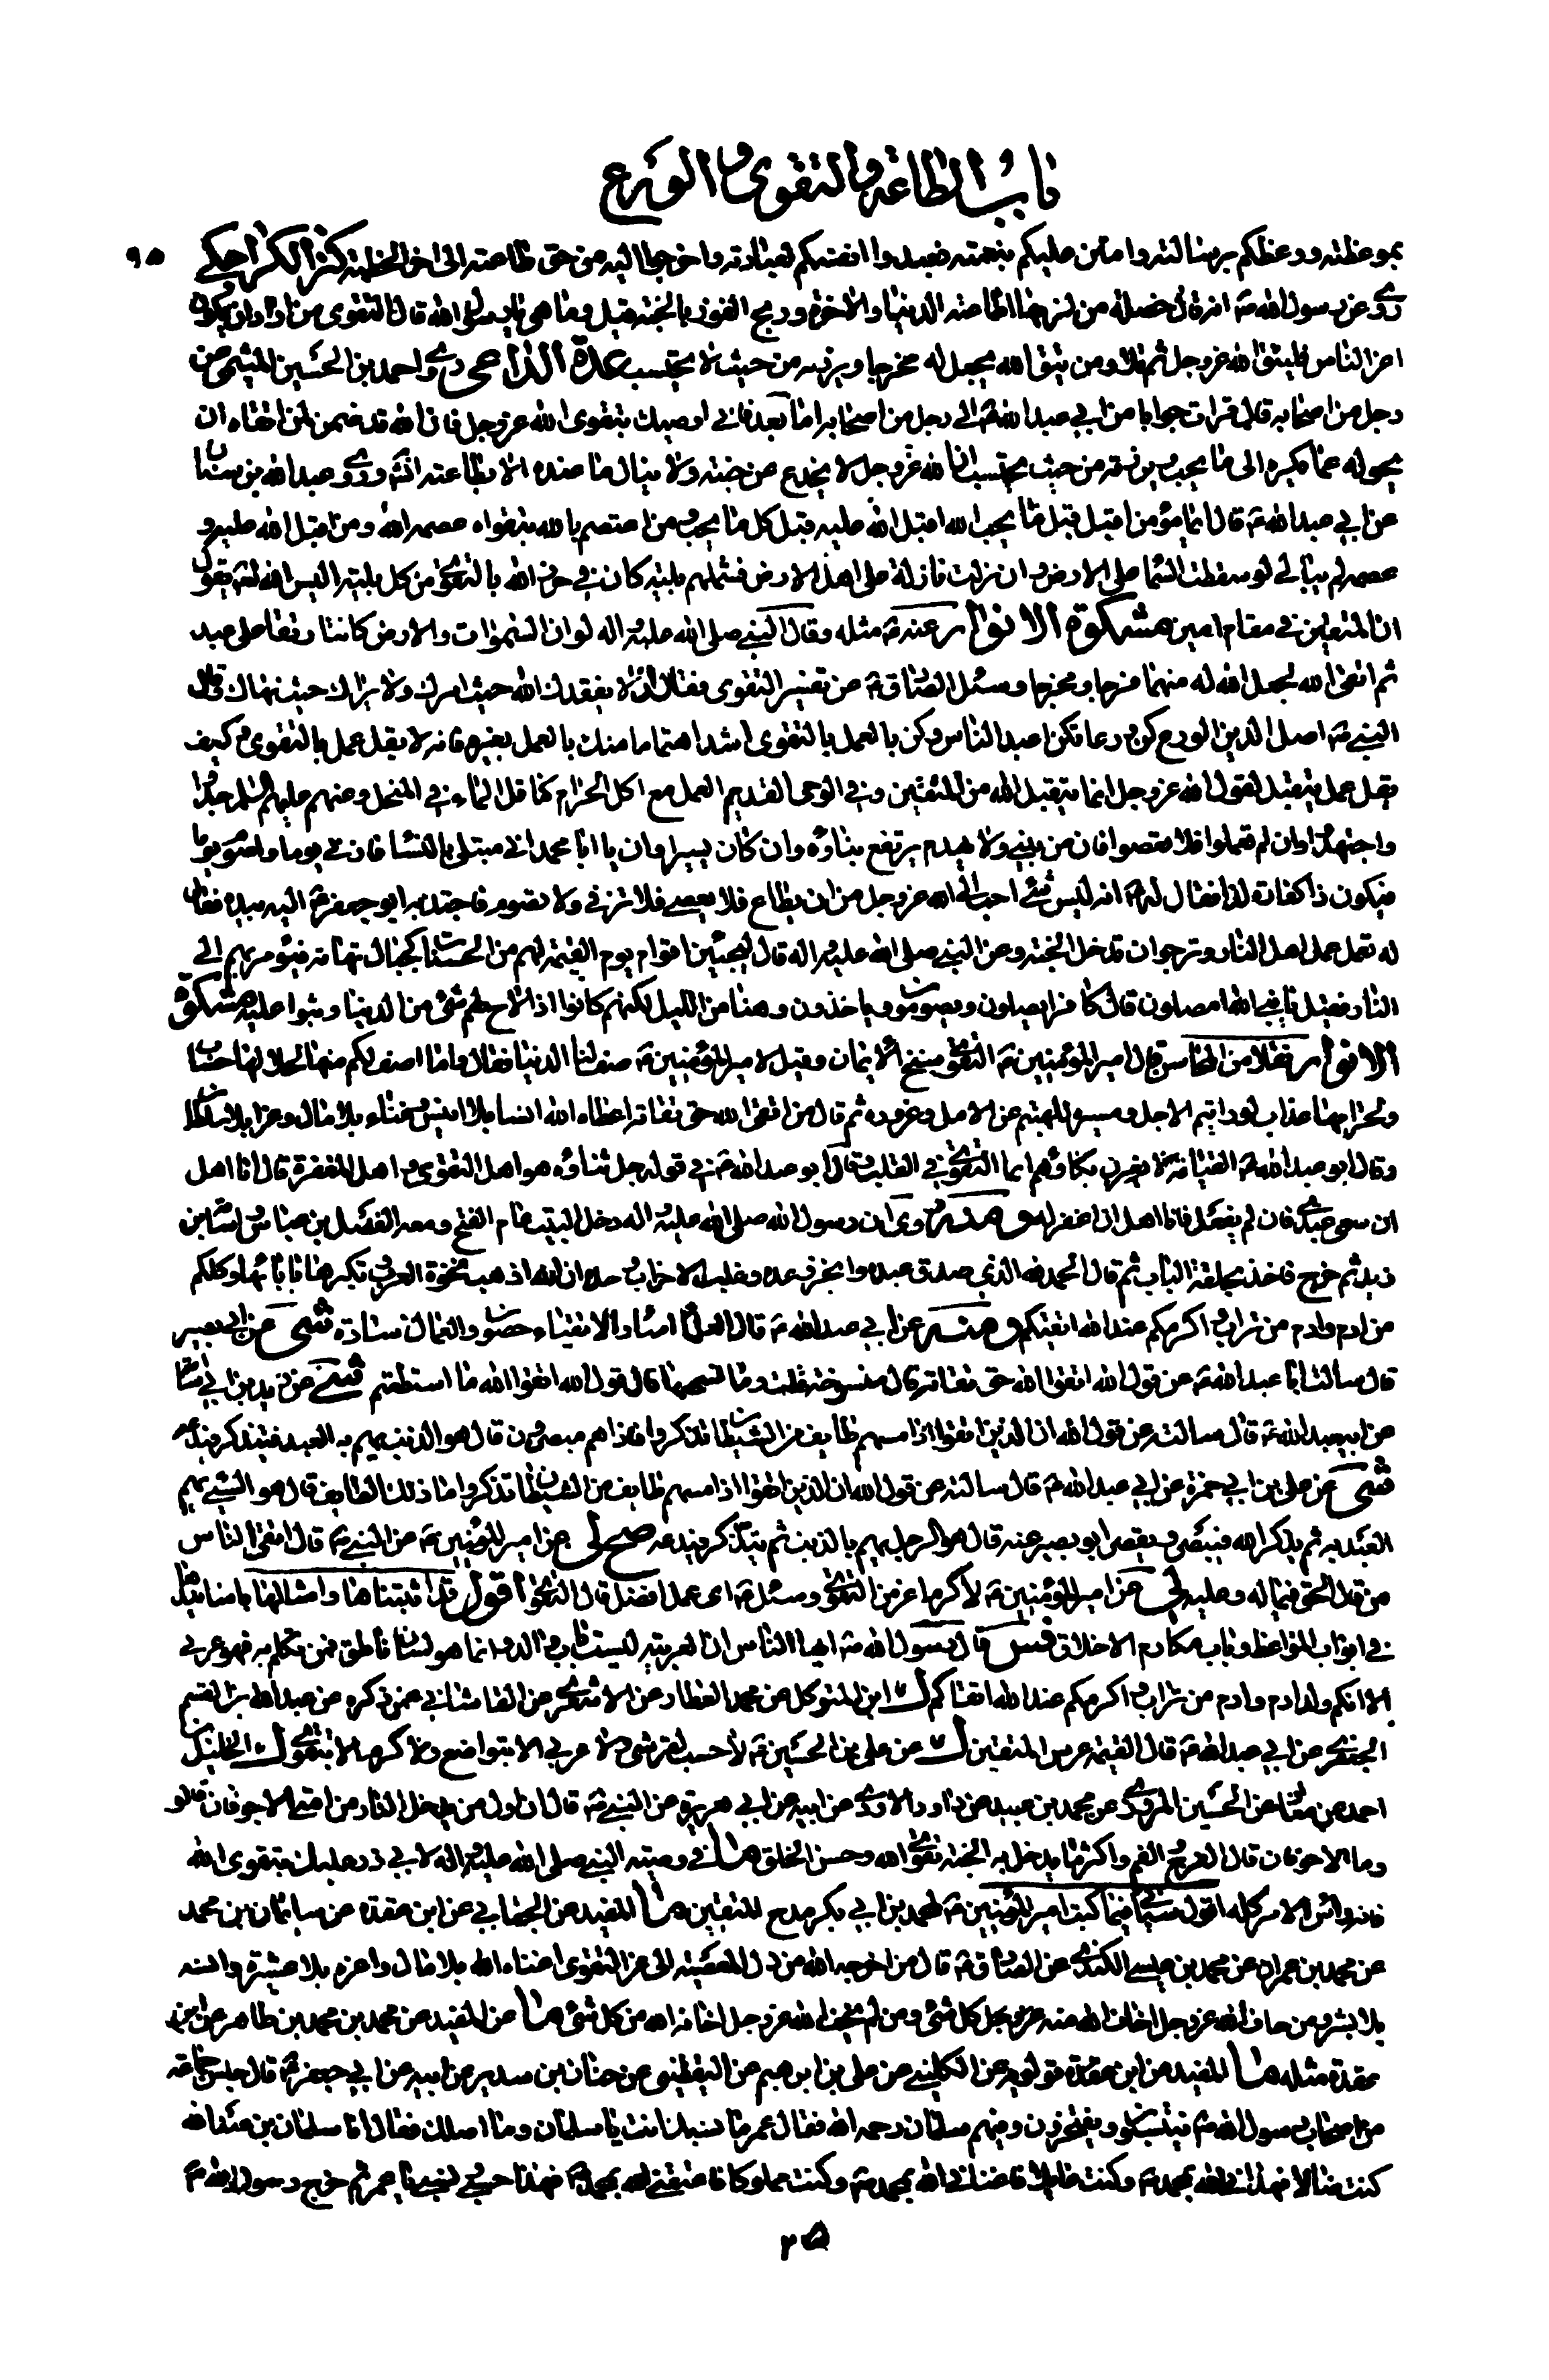 باب الطاعة والتقوى والورع
٩٥
بموعظته ووعظكم برسالته وامتن عليكم بنعمته فعبدوا انفسكم لعبادته واخرجوا اليه من حق طاعته الى اخر الخطبة كنز الكراجكى
روى عن رسول الله ص انه قال خصلة من لزمها اطاعته الدنيا والاخرة وربح الفوز بالجنة قيل وما هي يا رسول الله قال التقوى من اراد ان يكون
اعز الناس فليتق الله عز وجل ثم تلا ومن يتق الله يجعل له مخرجا ويرزقه من حيث لا يحتسب عدة الداعى روى احمد بن الحسين الميثمى عن
رجل من اصحابه قال قرات جوابا من ابي عبد الله ع الى رجل من اصحابه اما بعد فانى اوصيك بتقوى الله عز وجل فان الله قد ضمن لمن اتقاه ان
يحوله عما يكره الى ما يحب ويرزقه من حيث لا يحتسب ان الله عز وجل لا يخدع عن جنته ولا ينال ما عنده الا بطاعته انش وروى عبد الله بن سنان
عن ابي عبد الله ع قال ايما مؤمن اقبل قبل ما يحب الله اقبل الله عليه قبل كل ما يحب ومن اعتصم بالله بتقواه عصمه الله ومن اقبل الله عليه و
عصمه لم يبالى لو سقطت السماء على الارض وان نزلت نازلة على اهل الارض فشملهم بلية كان في حرز الله بالتقوى من كل بلية اليس الله تعالى يقول
ان المتقين في مقام امين مشكوة الانوار عنه ع مثله وقال النبي صلى الله عليه واله لو ان السموات والارض كانتا رتقا على عبد
ثم اتقى الله لجعل الله له منهما فرجا ومخرجا وسئل الصادق ع عن تفسير التقوى فقال ان لا يفقدك الله حيث امرك ولا يراك حيث نهاك وقال
النبي ص اصل الدين الورع كن ورعا تكن اعبد الناس وكن بالعمل بالتقوى اشد اهتماما منك بالعمل بغيره فانه لا يقل عمل بالتقوى وكيف
يقل عمل يتقبل لقول الله عز وجل انما يتقبل الله من المتقين وفي الوحى القديم العمل مع اكل الحرام كناقل الماء في المنخل وعنهم عليهم السلم جدوا
واجتهدوا وان لم تعملوا فلا تعصوا فان من يبني ولا يهدم يرتفع بناؤه وان كان يسيرا وان يا ابا محمد انى مبتلى بالنساء فازنى يوما واصوم يوما
فيكون ذا كفارة لذا فقال له ع انه ليس شئ احب الى الله عز وجل من ان يطاع فلا يعصى فلا تزنى ولا تصوم فاجتذبه ابو جعفر ع اليه بيده فقال
له تعمل عمل اهل النار وترجو ان تدخل الجنة وعن النبي صلى الله عليه واله قال ليجيئن اقوام يوم القيمة لهم من الحسنات كجبال تهامة فيؤمر بهم الى
النار فقيل يا نبي الله امصلون قال كانوا يصلون ويصومون وياخذون وهنا من الليل لكنهم كانوا اذا لاح لهم شئ من الدنيا وثبوا عليه مشكوة
الانوار نقلا من المحاسن قال امير المؤمنين ع التقوى سنخ الايمان وقيل لامير المؤمنين ع صف لنا الدنيا فقال وما اصف لكم منها لحلالها حساب
ولحرامها عذاب لو رايتم الاجل ومسيره للهيتم عن الامل وغروره ثم قال من اتقى الله حق تقاته اعطاه الله انسا بلا انيس وغناء بلا مال وعزا بلا سلطان
وقال ابو عبد الله ع القيامة بكاؤهم انما التقوى في القلب وقال ابو عبد الله ع في قوله جل ثناؤه هو اهل التقوى واهل المغفرة قال انا اهل
ان عبدى فان لم يفعل فانا اهل ان اغفر له ومنه روى ان رسول الله صلى الله عليه واله دخل البيت عام الفتح ومعه الفضل بن عباس واسامة بن
زيد ثم خرج فاخذ بحلقة الباب ثم قال الحمد لله الذي صدق عبده وانجز وعده وغلب الاحزاب وحده ان الله اذهب نخوة العرب وتكبرها بابائها وكلكم
من ادم وادم من تراب واكرمكم عند الله اتقيكم ومنه عن ابي عبد الله ع قال العلماء امناء والاتقياء حصون والعمال سادة شى عن ابي بصير
قال سالت ابا عبد الله ع عن قول الله اتقوا الله حق تقاته قال منسوخة قلت وما نسخها قال قول الله اتقوا الله ما استطعتم شى عن زيد بن ابي اسامة
عن ابي عبد الله ع قال سالته عن قول الله ان الذين اتقوا اذا مسهم طايف من الشيطان تذكروا فاذا هم مبصرون قال هو الذنب يهم به العبد فيتذكر فيدعه
شى عن على بن ابي حمزة عن ابي عبد الله ع قال سالته عن قول الله ان الذين اتقوا اذا مسهم طايف من الشيطان تذكروا ما ذلك الطايف قال هو السيئ يهم
العبد به ثم يذكر الله فيبصر ويقصر ابو بصير عنه قال هو الرجل يهم بالذنب ثم يتذكر فيدعه صح لى عن امير المؤمنين ع عن النبي ص قال اتقى الناس
من قال الحق فيما له وعليه لى عن امير المؤمنين ع لا كرم اعز من التقوى وسئل ع اى عمل افضل قال التقوى اقول قد اثبتناها وامثالها باسانيدها
في ابواب المواعظ وباب مكارم الاخلاق فس قال رسول الله ص ايها الناس ان العربية ليست باب والد وانما هو لسان ناطق فمن تكلم به فهو عربى
الا انكم ولد ادم وادم من تراب واكرمكم عند الله اتقاكم ل ابن المتوكل عن محمد العطار عن الاشعرى عن القاشانى عمن ذكره عن عبد الله بن القسم
الجعفرى عن ابي عبد الله ع قال القيمة عرس المتقين ل عن على بن الحسين ع لا حسب لقرشى ولا عربى الا بتواضع ولا كرم الا بتقوى ل الخليل بن
احمد عن معاذ عن الحسين المروزى عن محمد بن عبيد عن داود الاودى عن ابيه عن ابي هريرة عن النبي ص قال ان اول من يدخل النار من امتى الاجوفان قالوا
وما الاجوفان قال الفرج والفم واكثر ما يدخل به الجنة تقوى الله وحسن الخلق ما في وصية النبي صلى الله عليه واله لابي ذر عليك بتقوى الله
فانه راس الامر كله اقول سياتى فيما كتب امير المؤمنين ع لمحمد بن ابي بكر مدح للمتقين ما المفيد عن الجعابى عن ابن عقدة عن سليمان بن محمد
عن محمد بن عمران عن محمد بن عيسى الكندى عن الصادق ع قال من اخرجه الله من ذل المعصية الى عز التقوى اغناه الله بلا مال واعزه بلا عشيرة وانسه
بلا بشر ومن خاف الله عز وجل اخاف الله منه كل شئ ومن لم يخف الله عز وجل اخافه الله من كل شئ ما عن المفيد عن محمد بن محمد بن طاهر عن ابن
عقدة مثله ما المفيد عن ابن قولويه عن الكليني عن على بن ابرهيم عن اليقطينى عن حنان بن سدير عن ابيه عن ابي جعفر ع قال جلس جماعة
من اصحاب رسول الله ص ينتسبون ويفتخرون وفيهم سلمان رحمه الله فقال عمر ما نسبك انت يا سلمان وما اصلك فقال انا سلمان بن عبد الله
كنت ضالا فهدانى الله بمحمد ص وكنت عايلا فاغنانى الله بمحمد ص وكنت مملوكا فاعتقنى الله بمحمد ص فهذا حسبى ونسبى يا عمر ثم خرج رسول الله ص
٢٥